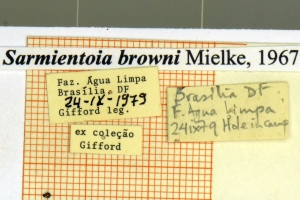 Sarmientoia browni Mielke, 1967
Faz. Agua Limpa
Brasília, DF
24-IX-1979
Gifford leg.
ex coleção
Gifford
Brasilia DF
F. Agua Limpa
24IX79